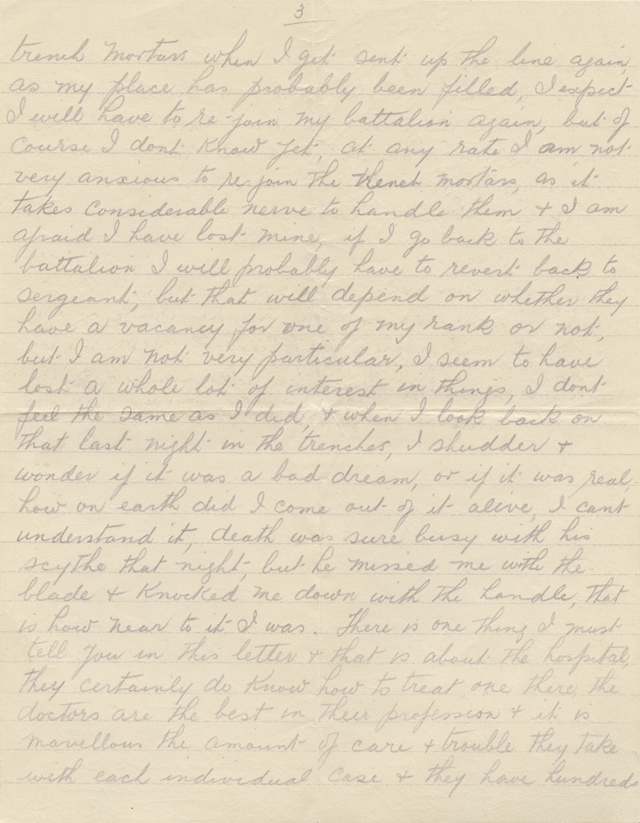 3
trench mortars when I get sent up the line again,
as my place has probably been filled, I expect
I will have to re-join my battalion again, but of
course I dont know yet, at any rate I am not
very anxious to re-join the trench mortars, as it
takes considerable nerve to handle them + I am
afraid I have lost mine, if I go back to the
battalion I will probably have to revert back to
sergeant, but that will depend on whether they
have a vacancy for one of my rank or not,
but I am not very particular, I seem to have
lost a whole lot of interest in things, I dont
feel the same as I did, + when I look back on
that last night in the trenches, I shudder +
wonder if it was a bad dream, or if it was real,
how on earth did I come out of it alive, I cant
understand it, death was sure busy with his
scythe that night, but he missed me with the
blade + knocked me down with the handle, that
is how near to it I was. There is one thing I must
tell you in this letter + that is about the hospital,
they certainly do know how to treat one there, the
doctors are the best in their profession + it is
mavellous the amount of care + trouble they take
with each individual case + they have hundreds